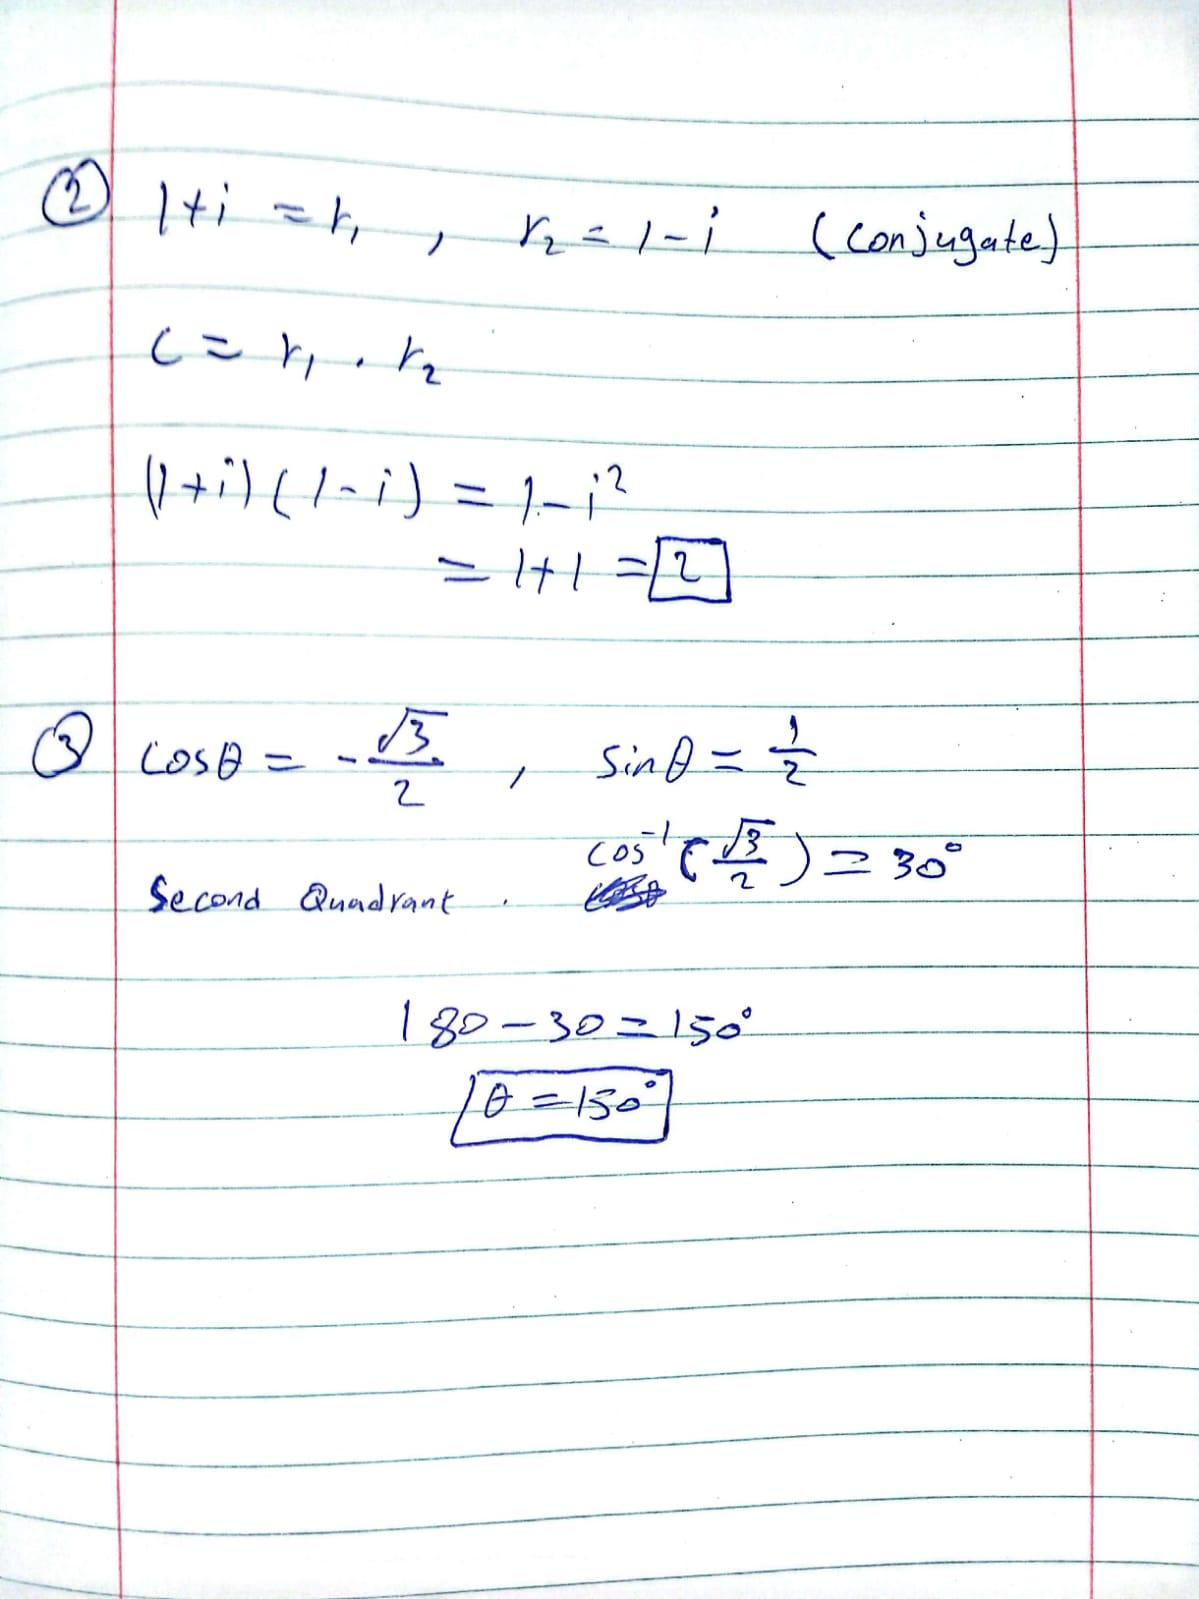 ② 1+i = r₁ , r₂ = 1-i (conjugate)
c = r₁ . r₂
(1+i)(1-i) = 1-i²
= 1+1 = 2
③ cosθ = -√3/2 , sinθ = 1/2
cos⁻¹(√3/2) = 30°
Second Quadrant .
180-30=150°
θ=150°